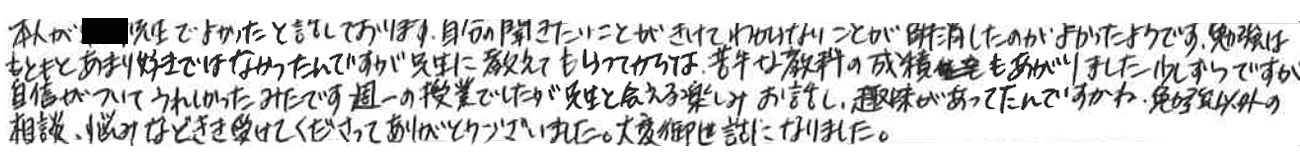 本人が先生でよかったと話しております。自分の聞きたいことがきけてわからないことが解消したのがよかったようです。勉強は
もともとあまり好きではなかったんですが先生に教えてもらってからは、苦手な教科の成績もあがりました少しずつですが
自信がついてうれしかったみたいです週一の授業でしたが先生と会える楽しみお話し、趣味があってたんですかね。勉強以外の
相談、悩みなどきき受けてくださってありがとうございました。大変御世話になりました。